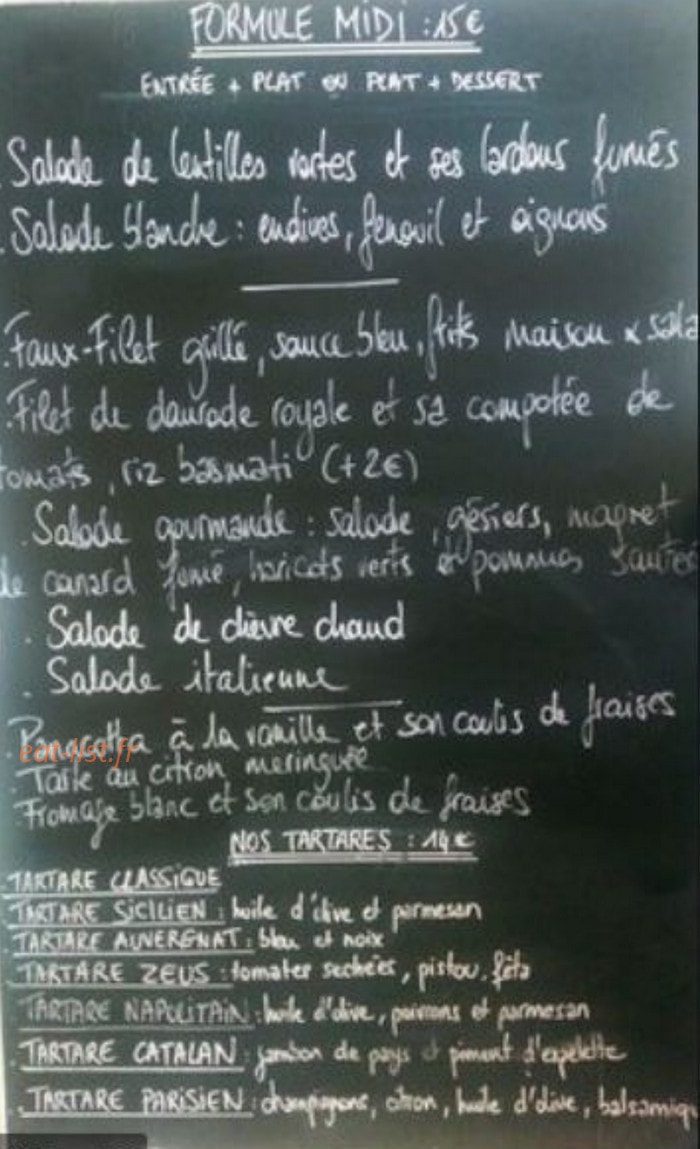 FORMULE MIDI : 15€
ENTRÉE + PLAT OU PLAT + DESSERT
. Salade de lentilles vertes et ses lardons fumés
. Salade blanche : endives, fenouil et oignons
. Faux-Filet grillé, sauce bleu, frits maison x sala
. Filet de daurade royale et sa compotée de
tomats, riz basmati (+2€)
. Salade gourmande : salade, gésiers, magret
de canard fumé, haricots verts et pommes sautes
. Salade de chèvre chaud
. Salade italienne
. Panacotta à la vanille et son coulis de fraises
eat-list.fr
. Tarte au citron meringuée
. Fromage blanc et son coulis de fraises
NOS TARTARES : 14€
. TARTARE CLASSIQUE
. TARTARE SICILIEN : huile d'olive et parmesan
. TARTARE AUVERGNAT : bleu et noix
. TARTARE ZEUS : tomates sechées, pistou, fêta
. TARTARE NAPOLITAIN : huile d'olive, poivrons et parmesan
. TARTARE CATALAN : jambon de pays et piment d'espelette
. TARTARE PARISIEN : champignons, citron, huile d'olive, balsamiq